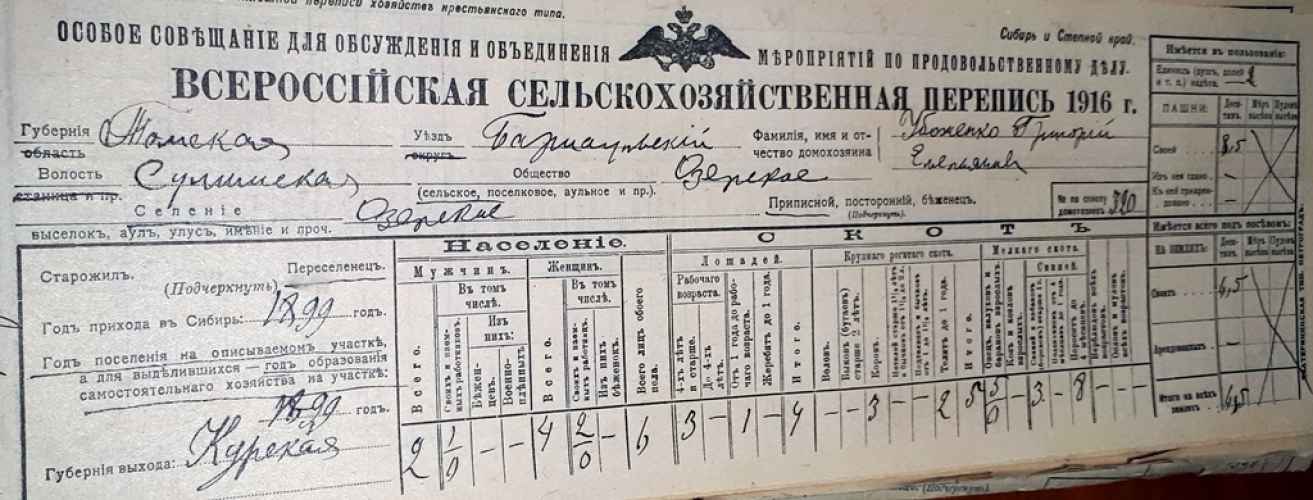 переписи хозяйствъ крестьянскаго типа.
Сибирь и Степной край.
ОСОБОЕ СОВѢЩАНІЕ ДЛЯ ОБСУЖДЕНІЯ И ОБЪЕДИНЕНІЯ МѢРОПРІЯТІЙ ПО ПРОДОВОЛЬСТВЕННОМУ ДѢЛУ.
ВСЕРОССІЙСКАЯ СЕЛЬСКОХОЗЯЙСТВЕННАЯ ПЕРЕПИСЬ 1916 г.
Губернія Томская Уѣздъ Барнаульскій Фамилія, имя и от- Убоженко Григорій
область округъ чество домохозяина Емельянов
Волость Сулимская Общество Озерское
станица и пр. (сельское, поселковое, аульное и пр.).
Селеніе Озерское Приписной, посторонній, бѣженец.
(Подчеркнуть).
№ по списку домохозяевъ 390
выселокъ, аулъ, улусъ, имѣніе и проч.
Старожилъ. Переселенецъ.
(Подчеркнуть)
Годъ прихода в Сибирь: 1899 годъ.
Годъ поселенія на описываемомъ участкѣ,
а для выдѣлившихся — годъ образованія
самостоятельнаго хозяйства на участкѣ:
1899 годъ.
Губернія выхода: Курская
Населеніе.
Мужчинъ. Женщин.
Въ томъ числѣ. Въ томъ числѣ.
Изъ нихъ:
Всего.
Своихъ и наемныхъ работниковъ.
Бѣженцевъ.
Военноплѣнныхъ
Всего.
Своихъ и наемныхъ работниц.
Изъ нихъ бѣженокъ.
Всего лицъ обоего пола.
СКОТЪ
Лошадей. Крупнаго рогатаго скота. Мелкаго скота.
Рабочаго возраста.
4-хъ лѣтъ и старше.
До 4-хъ лѣтъ.
Отъ 1 года до рабочаго возраста.
Жеребятъ до 1 года.
Итого.
Воловъ.
Быковъ (бугаевъ) старше 2 лѣтъ.
Коровъ.
Телятъ до 1 года.
Итого.
Свиней.
2 1/0 – – 4 2/0 – 6 3 – 1 – 4 – – 3 – – 2 5 5/0 – 3 – 8 – – –
Имѣется въ пользованіи:
Единицъ (душ, долей и т. п.) надѣла. 2
ПАШНИ: Десятин.
Своей 8,5
Изъ нея сдано –
Къ ней прикрендовано –
Имѣется всего подъ посѣвомъ:
НА ЗЕМЛЯХЪ:
Своихъ 6,5
Арендованныхъ –
Итого на всѣхъ земляхъ 6,5
(Подчеркнуть)